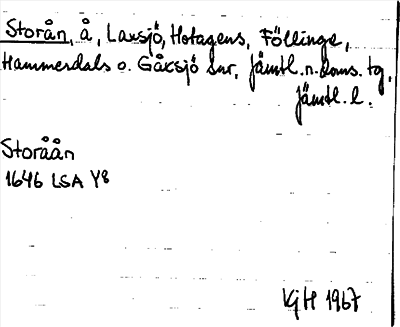 Storån, å, Laxsjö, Hotagens, Föllinge,
Hammerdals o. Gåxsjö snr, Jämtl. n. doms. tg,
Jämtl. l.
Storåån
1646 LSA Y8
KgH 1967